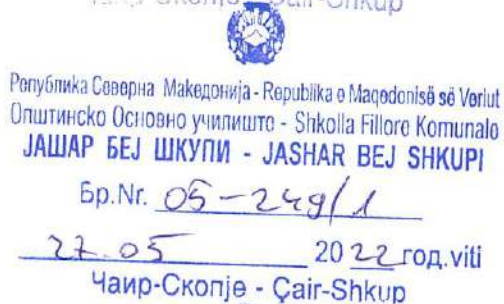 Чаир-Скопје - Çair-Shkup
Република Северна Македонија - Republika e Maqedonisë së Veriut
Општинско Основно училиште - Shkolla Fillore Komunale
ЈАШАР БЕЈ ШКУПИ - JASHAR BEJ SHKUPI
Бр.Nr. 05-249/1
27.05 2022 год.viti
Чаир-Скопје - Çair-Shkup